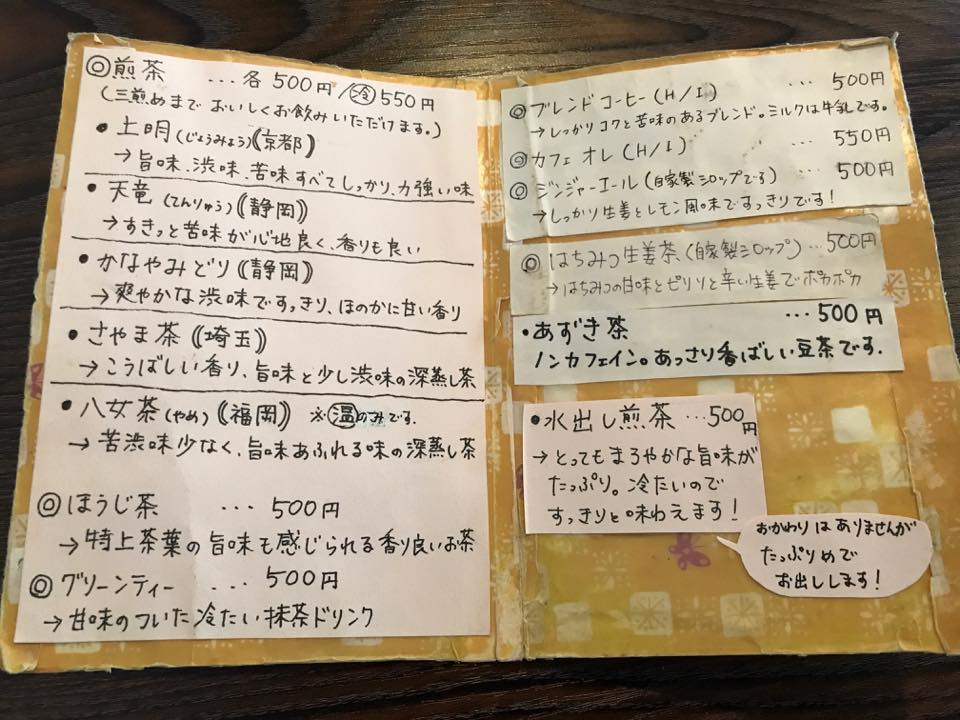 ◎煎茶 ...各500円/冷550円
(三煎めまでおいしくお飲みいただけます。)
・上明(じょうみょう)《京都》
→旨味、渋味、苦味すべてしっかり、力強い味
・天竜(てんりゅう)《静岡》
→すきっと苦味が心地良く、香りも良い
・かなやみどり《静岡》
→爽やかな渋味ですっきり、ほのかに甘い香り
・さやま茶《埼玉》
→こうばしい香り、旨味と少し渋味の深蒸し茶
・八女茶(やめ)《福岡》 ※温のみです.
→苦渋味少なく、旨味あふれる味の深蒸し茶
◎ほうじ茶 ...500円
→特上茶葉の旨味も感じられる香り良いお茶
◎グリーンティー ...500円
→甘味のついた冷たい抹茶ドリンク
◎ブレンドコーヒー(H/I) ...500円
→しっかりコクと苦味のあるブレンド。ミルクは牛乳です。
◎カフェオレ(H/I) ...550円
◎ジンジャーエール(自家製シロップです) 500円
→しっかり生姜とレモン風味ですっきりです!
◎はちみつ生姜茶(自家製シロップ)...500円
→はちみつの甘味とピリリと辛い生姜でポカポカ
・あずき茶 ...500円
ノンカフェイン。あっさり香ばしい豆茶です.
・水出し煎茶...500円
→とってもまろやかな旨味が
たっぷり。冷たいので
すっきりと味わえます!
おかわりはありませんが
たっぷりめで
お出しします!